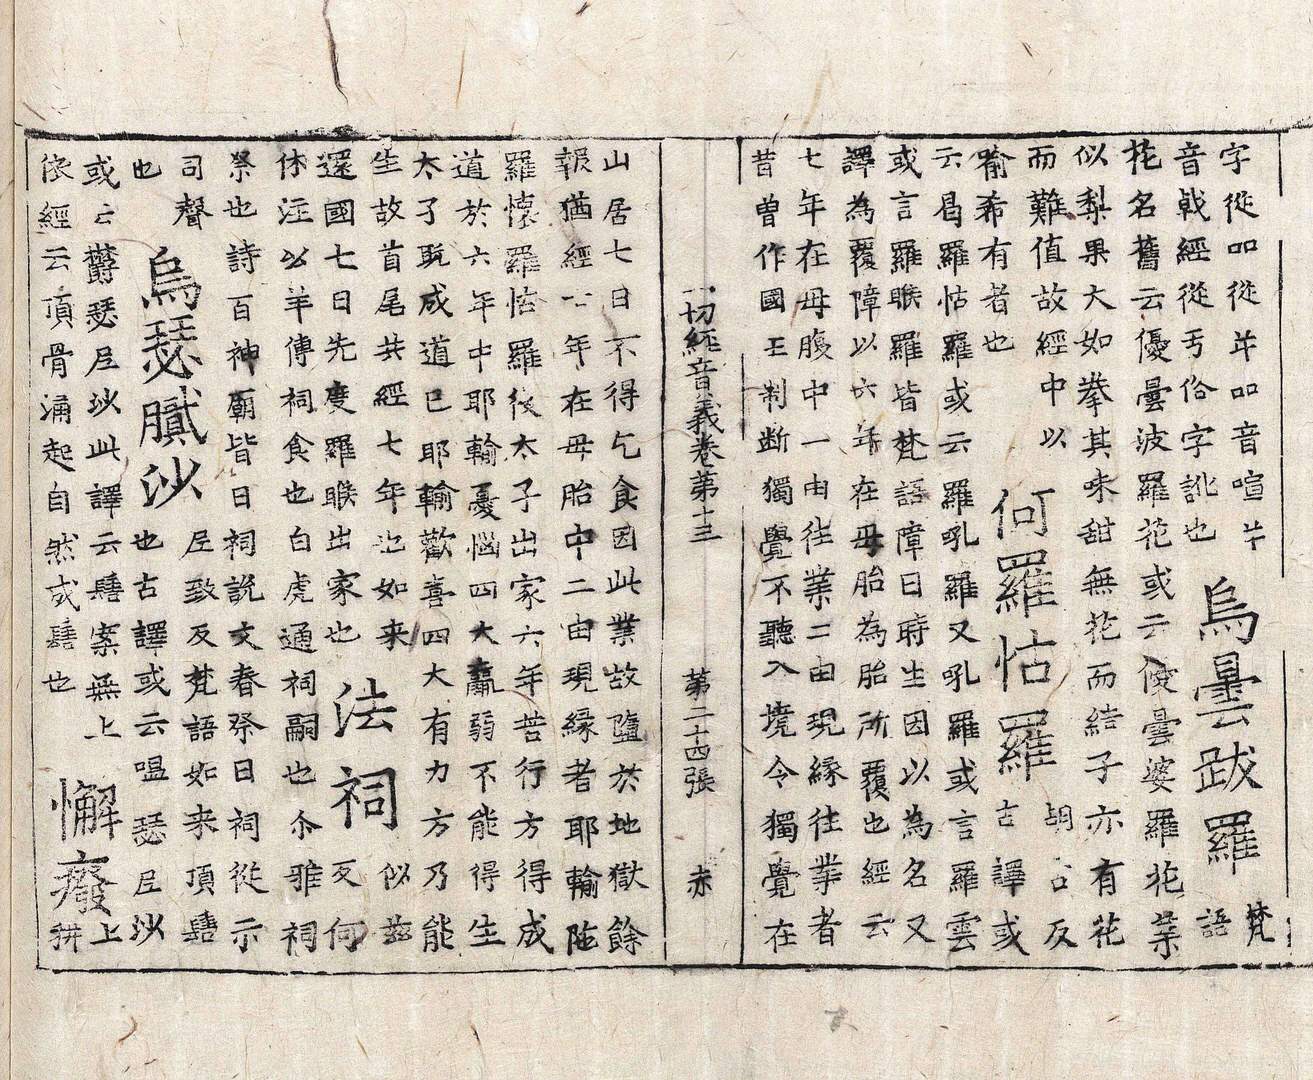 字從吅從𦫳吅音喧𦫳
音戟經從亐俗字訛也
烏曇跋羅
梵
語
花名舊云優曇波羅花或云優曇婆羅花葉
似梨果大如拳其味甜無花而結子亦有花
而難值故經中以
喻希有者也
何羅怙羅
胡古反
古譯或
云曷羅怙羅或云羅吼羅又吼羅或言羅雲
或言羅睺羅皆梵語障日時生因以為名又
譯為覆障以六年在母胎為胎所覆也經云
七年在母腹中一由往業二由現緣往業者
昔曾作國王制斷獨覺不聽入境令獨覺在
一切經音義卷第十三 第二十四張 赤
山居七日不得乞食因此業故墮於地獄餘
報猶經七年在母胎中二由現緣者耶輸陁
羅懷羅怙羅後太子出家六年苦行方得成
道於六年中耶輸憂惱四大羸弱不能得生
太子既成道已耶輸歡喜四大有力方乃能
生故首尾共經七年也如来
還國七日先度羅睺出家也
法祠
似兹
反何
休注公羊傳祠食也白虎通祠嗣也尒雅祠
祭也詩百神廟皆曰祠說文春祭曰祠從示
司聲
也
烏瑟膩沙
尼致反梵語如来頂髻
也古譯或云嗢瑟尼沙
或云鬱瑟尼沙此譯云髻案無上
依經云頂骨涌起自然成髻也
懈廢
上
耕